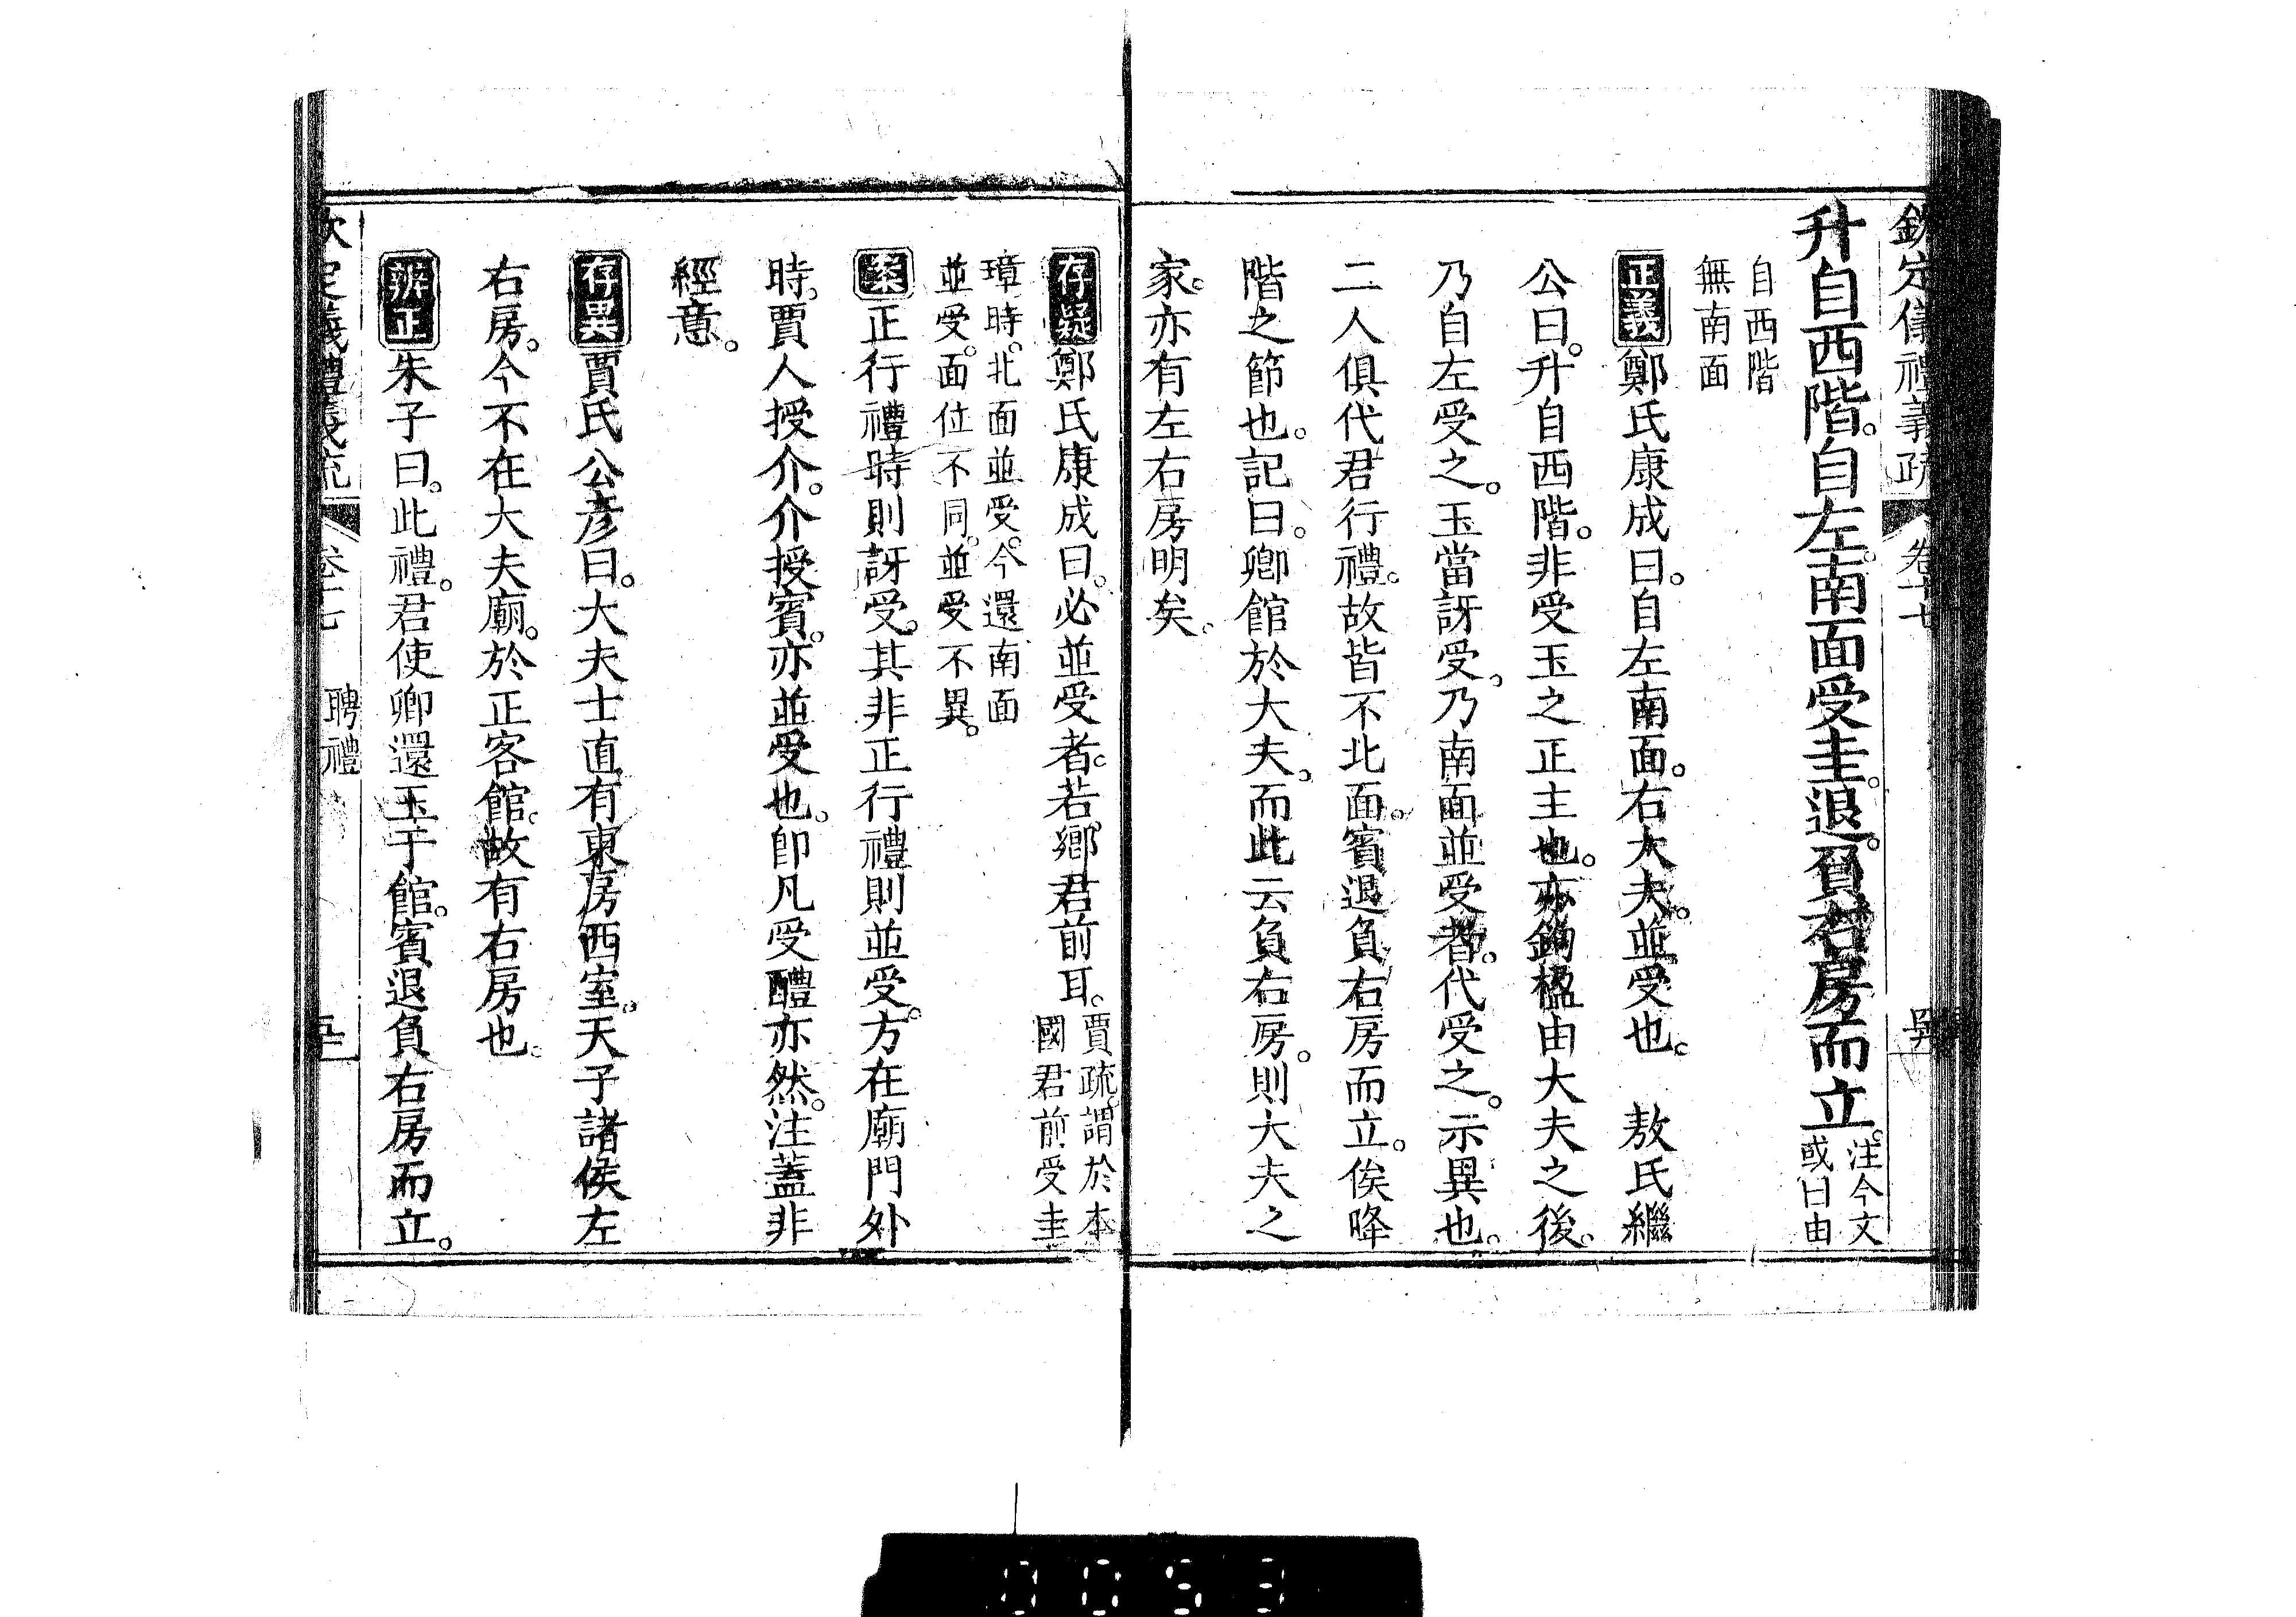 欽定儀禮義疏 卷十七
升自西階。自左。南面受圭。退。負右房而立。注今文或曰由
自西階
無南面
正義鄭氏康成曰。自左南面。右大夫。並受也。 敖氏繼
公曰。升自西階。非受玉之正主也。亦鉤楹由大夫之後。
乃自左受之。玉當訝受。乃南面並受者。代受之。示異也。
二人俱代君行禮。故皆不北面。賓退負右房而立。俟降
階之節也。記曰。卿館於大夫。而此云負右房。則大夫之
家。亦有左右房明矣。
存疑鄭氏康成曰。必並受者。若鄉君前耳。賈疏。謂於本國君前受圭
璋時。北面並受。今還南面
並受。面位不同。並受不異。
案正行禮時則訝受。其非正行禮則並受。方在廟門外
時。賈人授介。介授賓。亦並受也。卽凡受醴亦然。注蓋非
經意。
存異賈氏公彥曰。大夫士直有東房西室。天子諸侯左
右房。今不在大夫廟。於正客館。故有右房也。
辨正朱子曰。此禮。君使卿還玉于館。賓退負右房而立。
欽定儀禮義疏 卷十七 聘禮